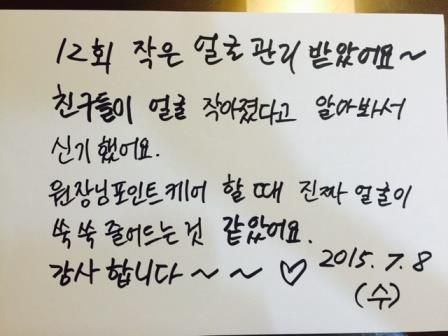 12회 작은 얼굴 관리 받았어요~
친구들이 얼굴 작아졌다고 알아봐서
신기했어요.
원장님포인트케어 할 때 진짜 얼굴이
쑥쑥 줄어드는것 같았어요.
감사합니다~~♡ 2015.7.8
(수)